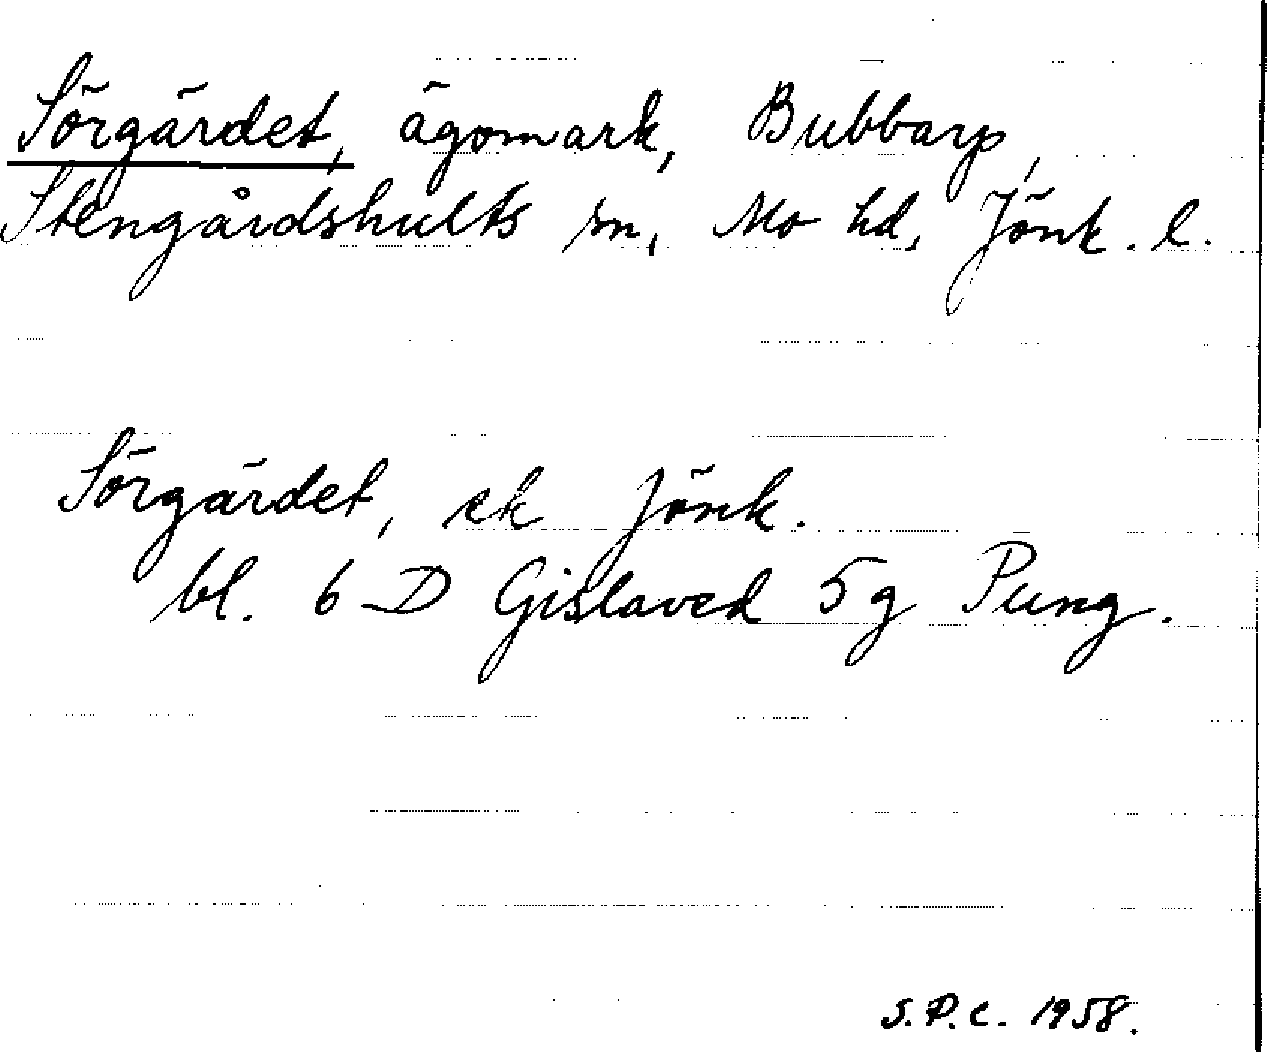 Sörgärdet, ägomark, Bubbarp,
Stengårdshults sn, Mo hd, Jönk. l.
Sörgärdet, ek Jönk.
bl. 6 D Gislaved 5g Pung.
S.P.C. 1958.